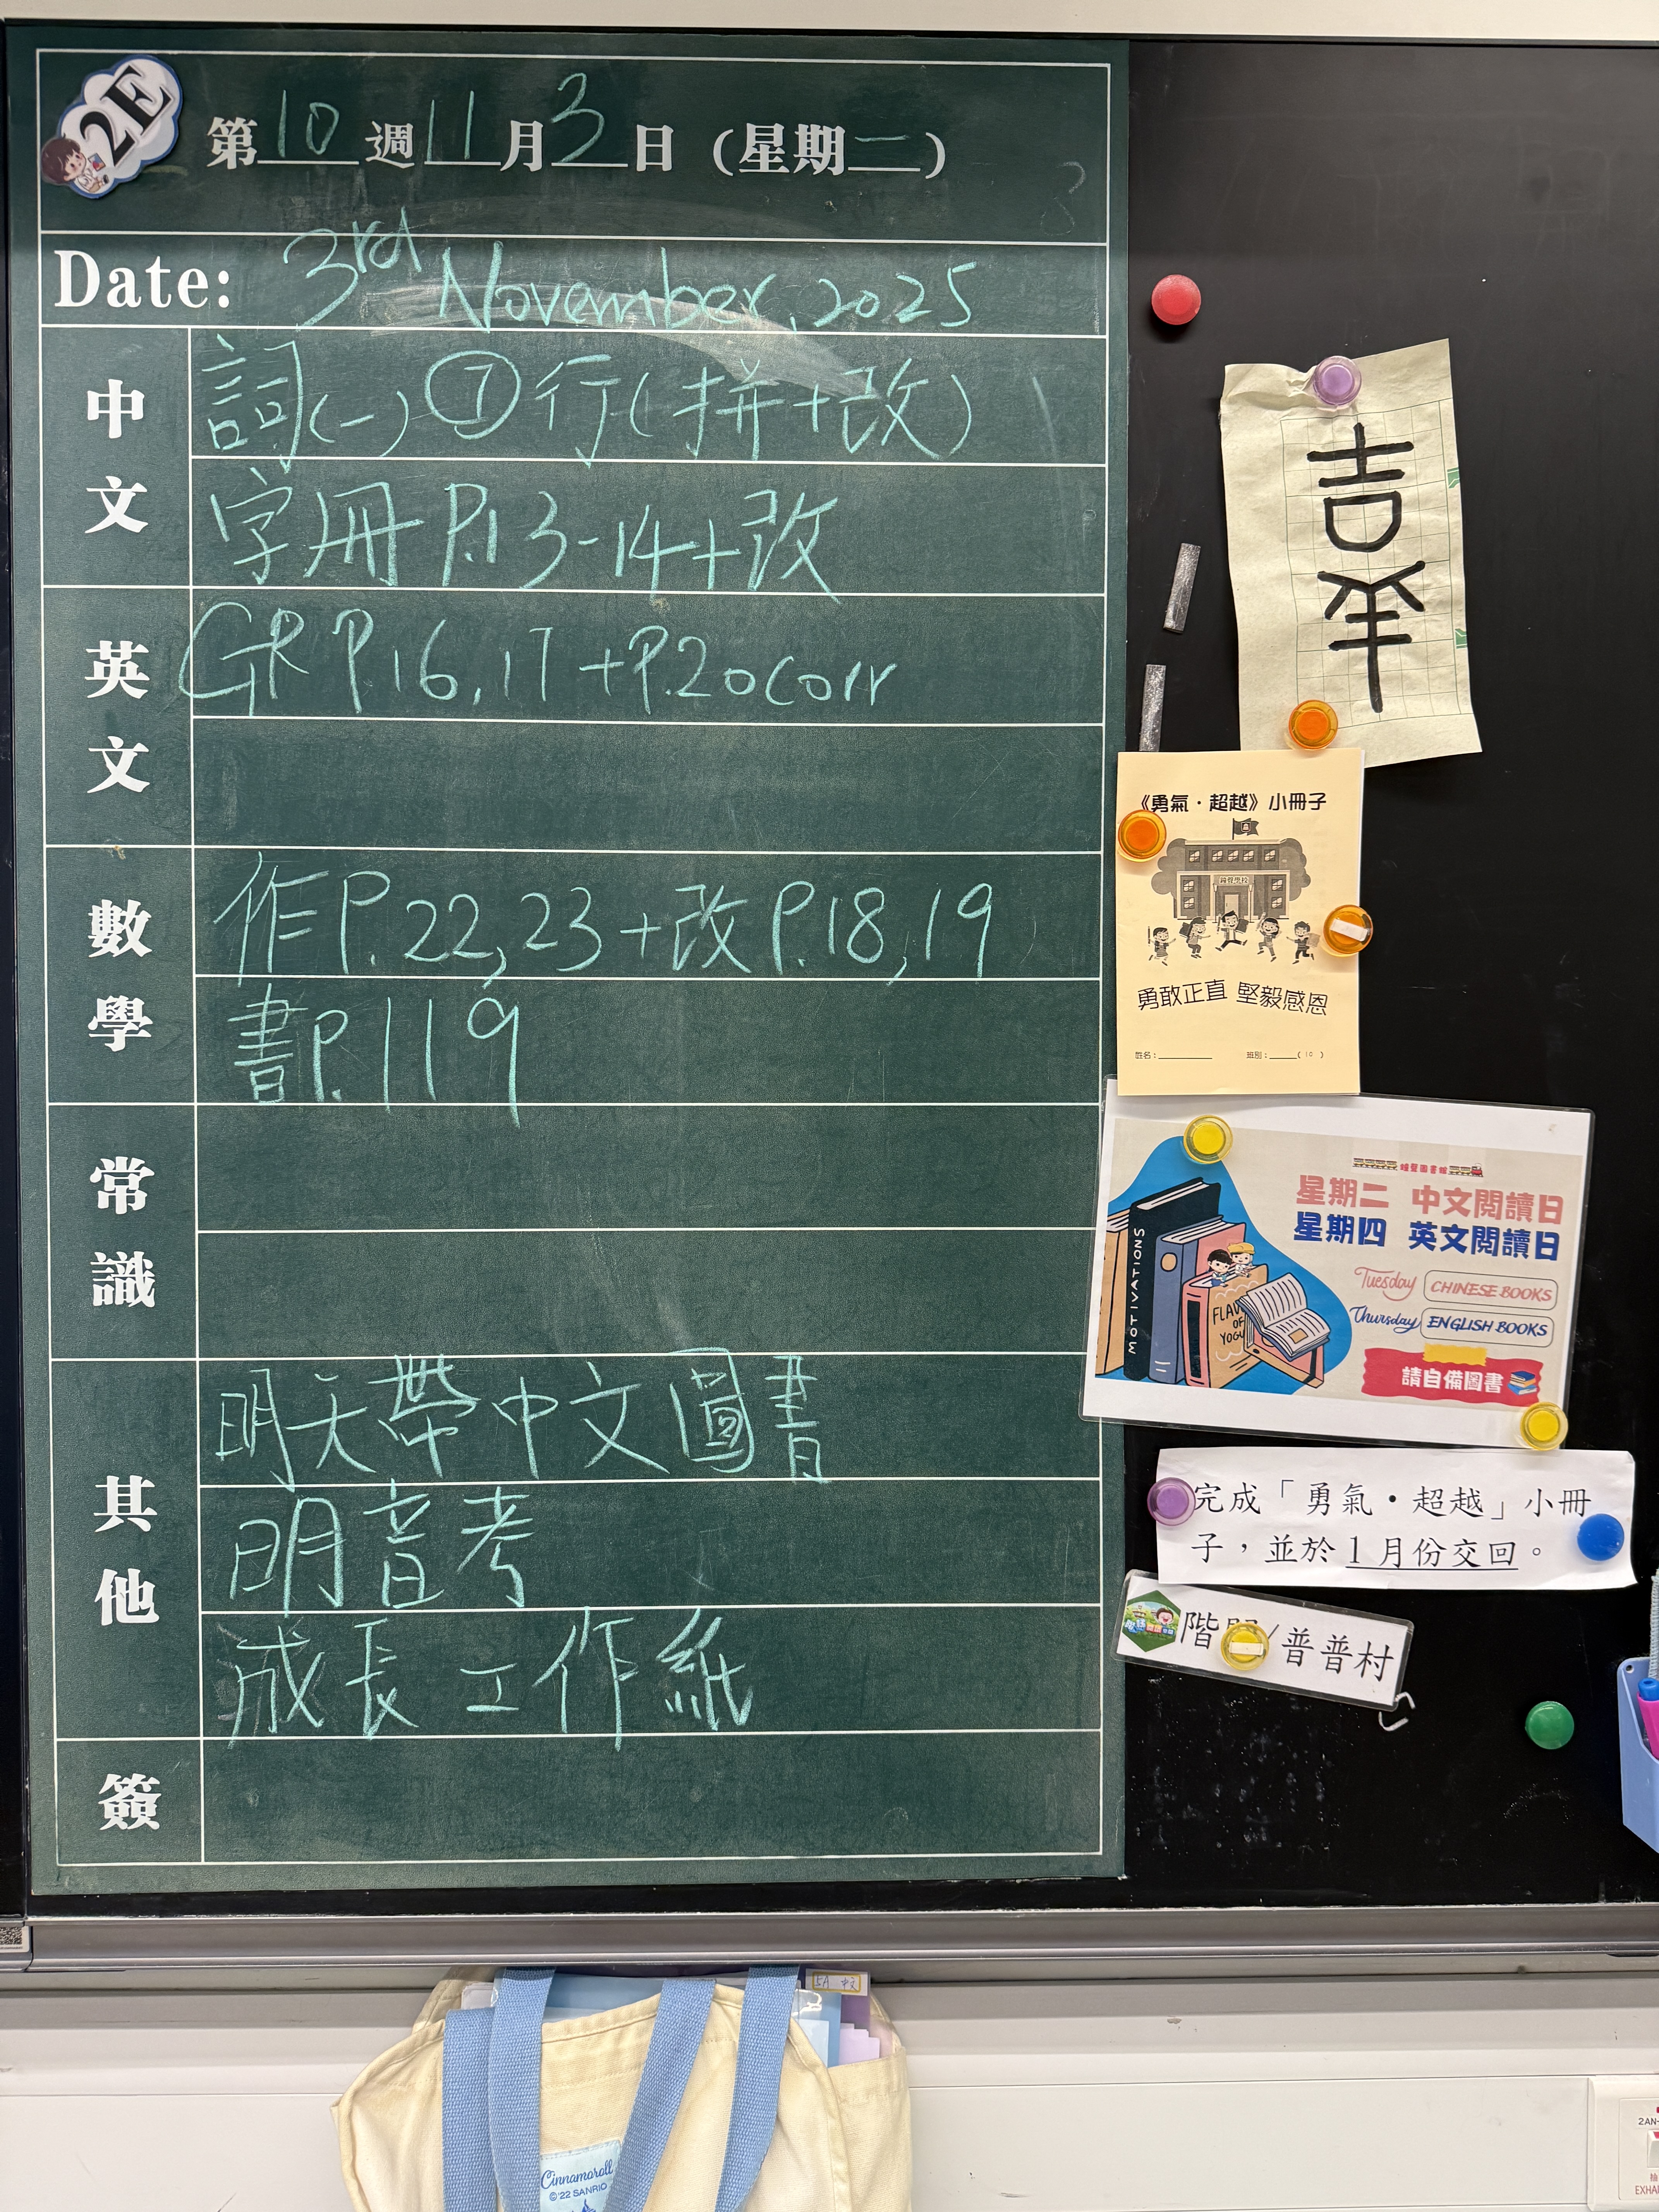 2E
第10週11月3日（星期一）
Date: 3rd November, 2025
中文
詞(一)⑦行(拼+改)
字冊 P.13-14+改
英文
GR P.16, 17 +P.20corr
數學
作P.22,23+改P.18,19
書P.119
常識
其他
明天帶中文圖書
明音考
成長工作紙
簽
吉羊
《勇氣．超越》小冊子
鐘聲學校
勇敢正直 堅毅感恩
姓名：
班別：( 10 )
鐘聲圖書館
星期二 中文閱讀日
星期四 英文閱讀日
Tuesday CHINESE BOOKS
Thursday ENGLISH BOOKS
請自備圖書
MOTIVATIONS
FLAV
OF
YOGU
完成「勇氣．超越」小冊
子，並於1月份交回。
階/普普村
5A 中文
Cinnamoroll
©'22 SANRIO
2AN-
EXHA